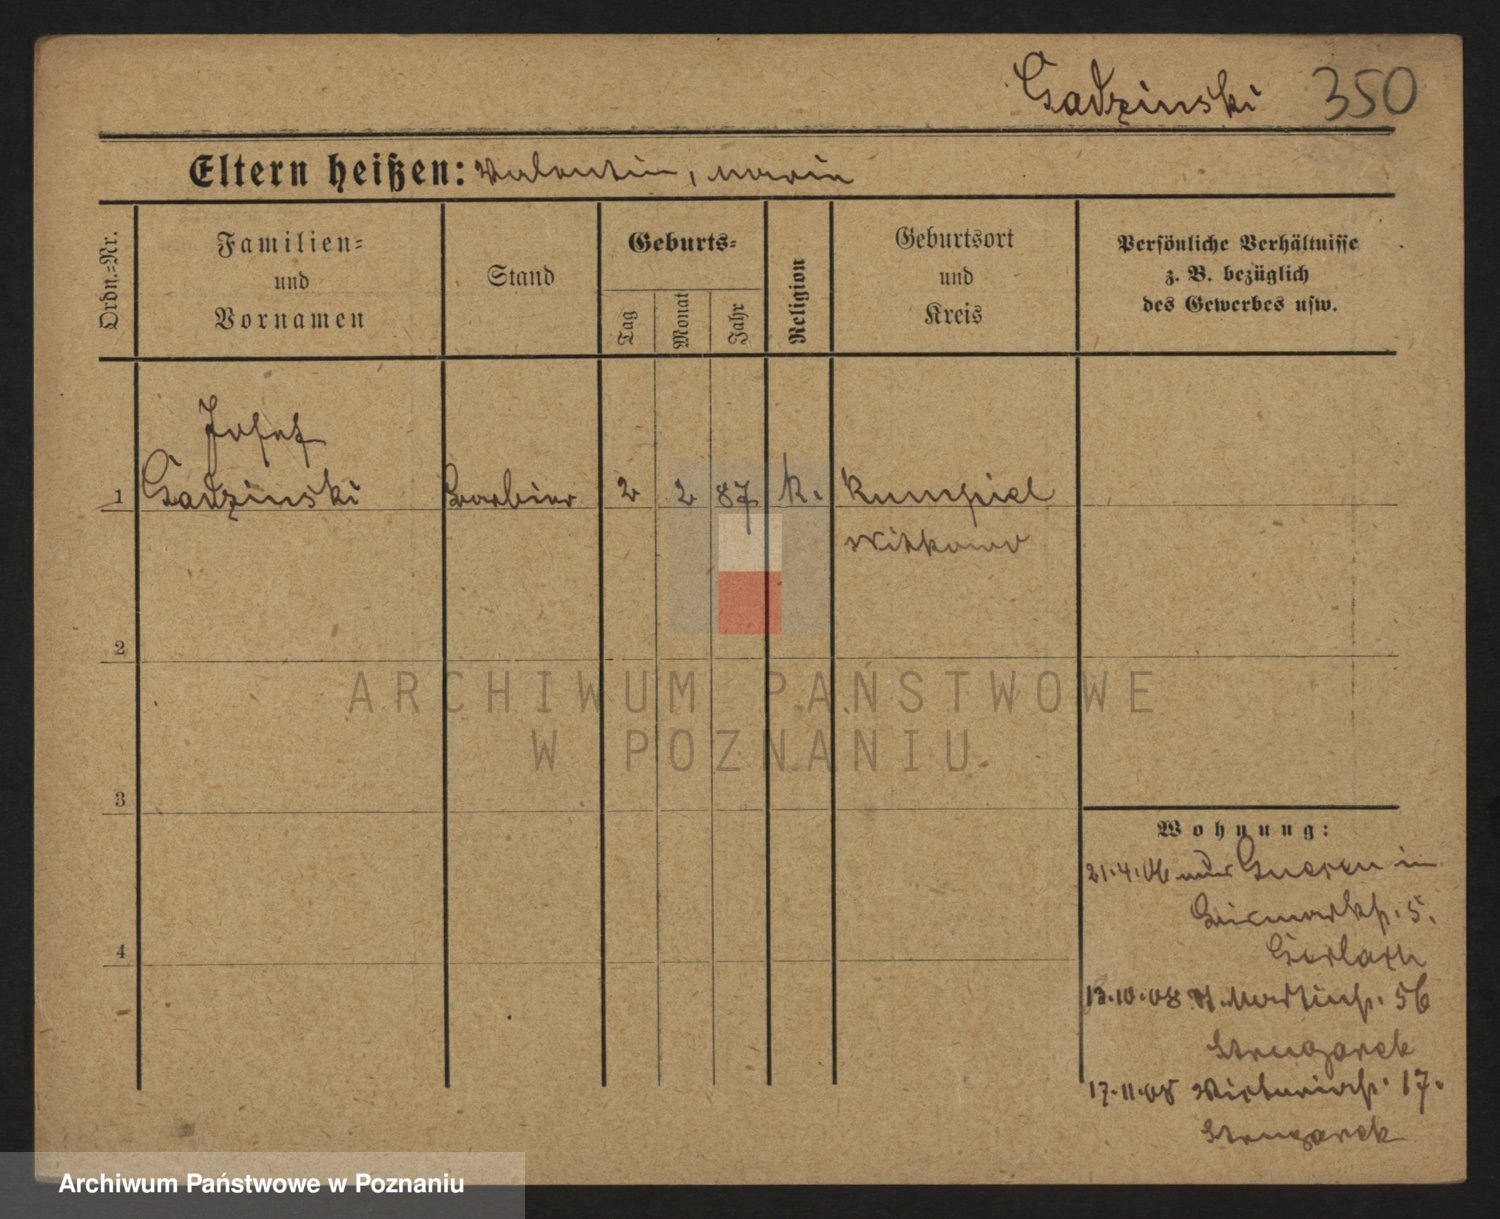 Gadzinski 350
Eltern heißen: Valentin, Marie
Ordn.-Nr.
Familien-
und
Vornamen
Stand
Geburts-
Tag
Monat
Jahr
Religion
Geburtsort
und
Kreis
Persönliche Verhältnisse
z. B. bezüglich
des Gewerbes usw.
Josef
1 Gadzinski Barbier 2 2 87 k.
Witkowo
2
ARCHIWUM PAŃSTWOWE
W POZNANIU
3
Wohnung:
21.4.06 Gnesen in
Bismarkst. 5.
Gerlach
4
13.10.08 St. Martinst. 56
17.11.08 Victoriast. 17.
Archiwum Państwowe w Poznaniu